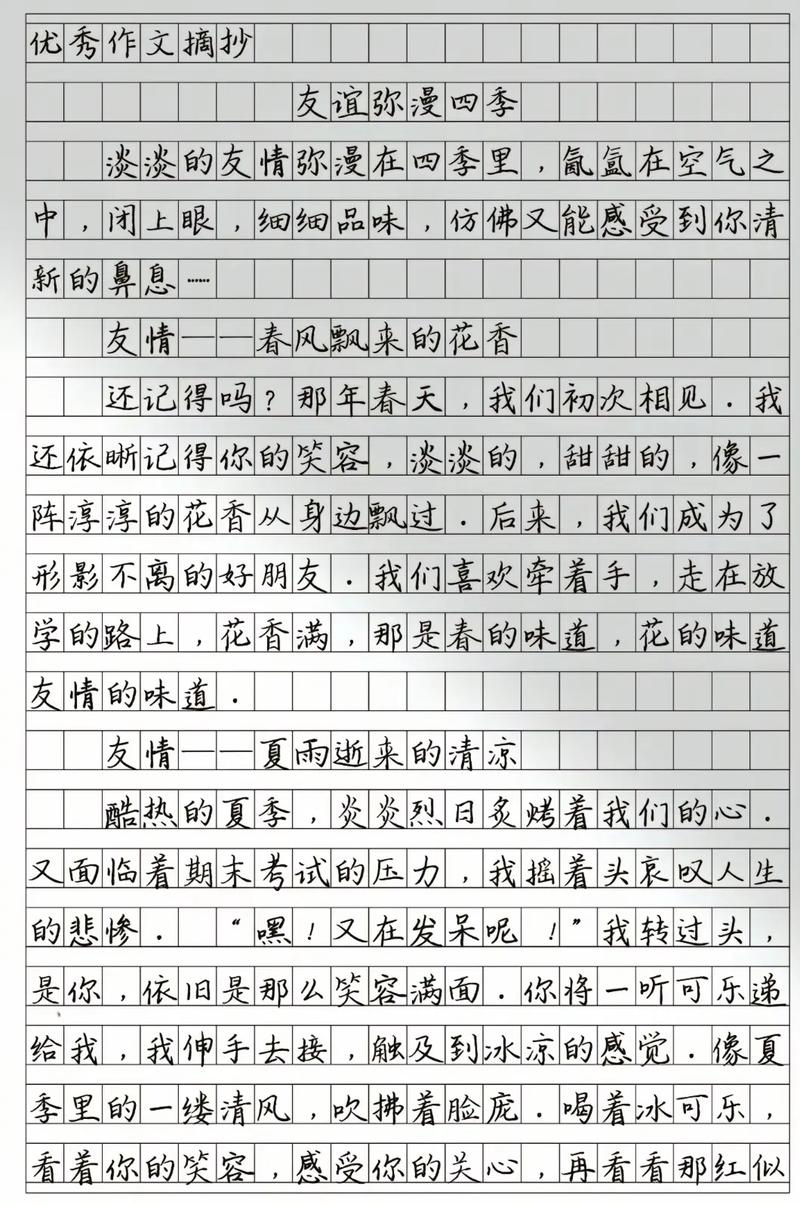 优秀作文摘抄
友谊弥漫四季
淡淡的友情弥漫在四季里，氤氲在空气之
中，闭上眼，细细品味，仿佛又能感受到你清
新的鼻息……
友情——春风飘来的花香
还记得吗？那年春天，我们初次相见．我
还依晰记得你的笑容，淡淡的，甜甜的，像一
阵淳淳的花香从身边飘过．后来，我们成为了
形影不离的好朋友．我们喜欢牵着手，走在放
学的路上，花香满，那是春的味道，花的味道
友情的味道．
友情——夏雨逝来的清凉
酷热的夏季，炎炎烈日炙烤着我们的心．
又面临着期末考试的压力，我摇着头哀叹人生
的悲惨．“嘿！又在发呆呢！”我转过头，
是你，依旧是那么笑容满面．你将一听可乐递
给我，我伸手去接，触及到冰凉的感觉．像夏
季里的一缕清风，吹拂着脸庞．喝着冰可乐，
看着你的笑容，感受你的关心，再看看那红似